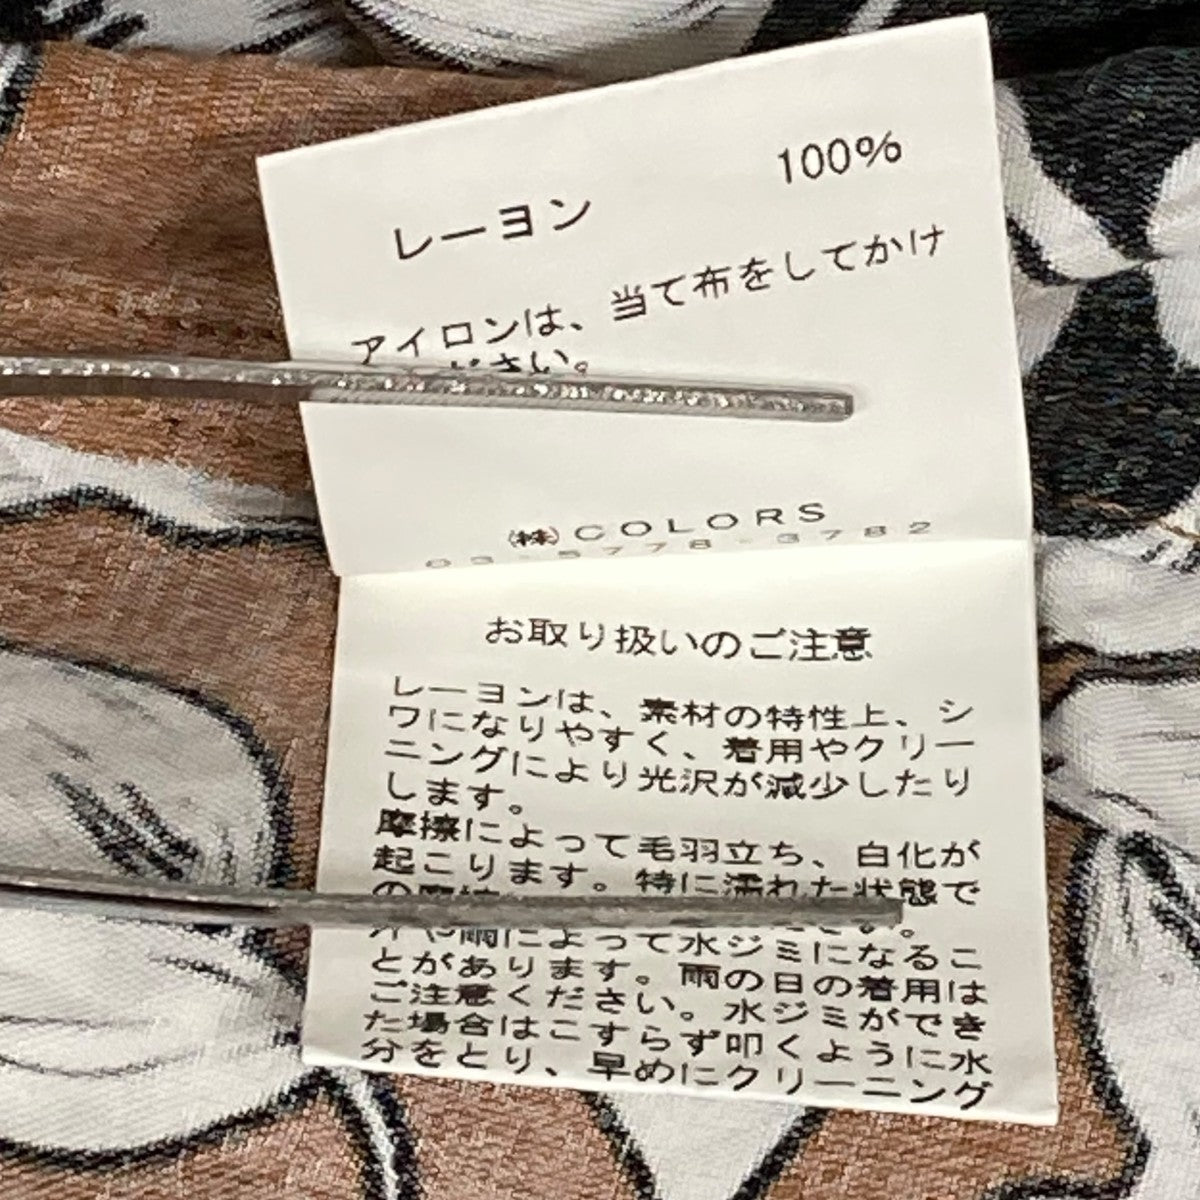 100%
レーヨン
アイロンは、当て布をしてかけ
ださい。
㈱COLORS
03-5778-3782
お取り扱いのご注意
レーヨンは、素材の特性上、シ
ワになりやすく、着用やクリー
ニングにより光沢が減少したり
します。
摩擦によって毛羽立ち、白化が
起こります。特に濡れた状態で
の摩擦
汗や雨によって水ジミになるこ
とがあります。雨の日の着用は
ご注意ください。水ジミができ
た場合はこすらず叩くように水
分をとり、早めにクリーニング